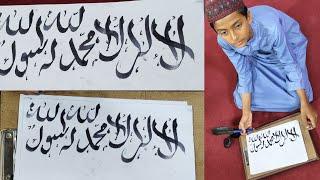 لا اله الا الله محمد رسول الله
لا اله الا الله محمد رسول الله
لا اله الا الله محمد رسول الله